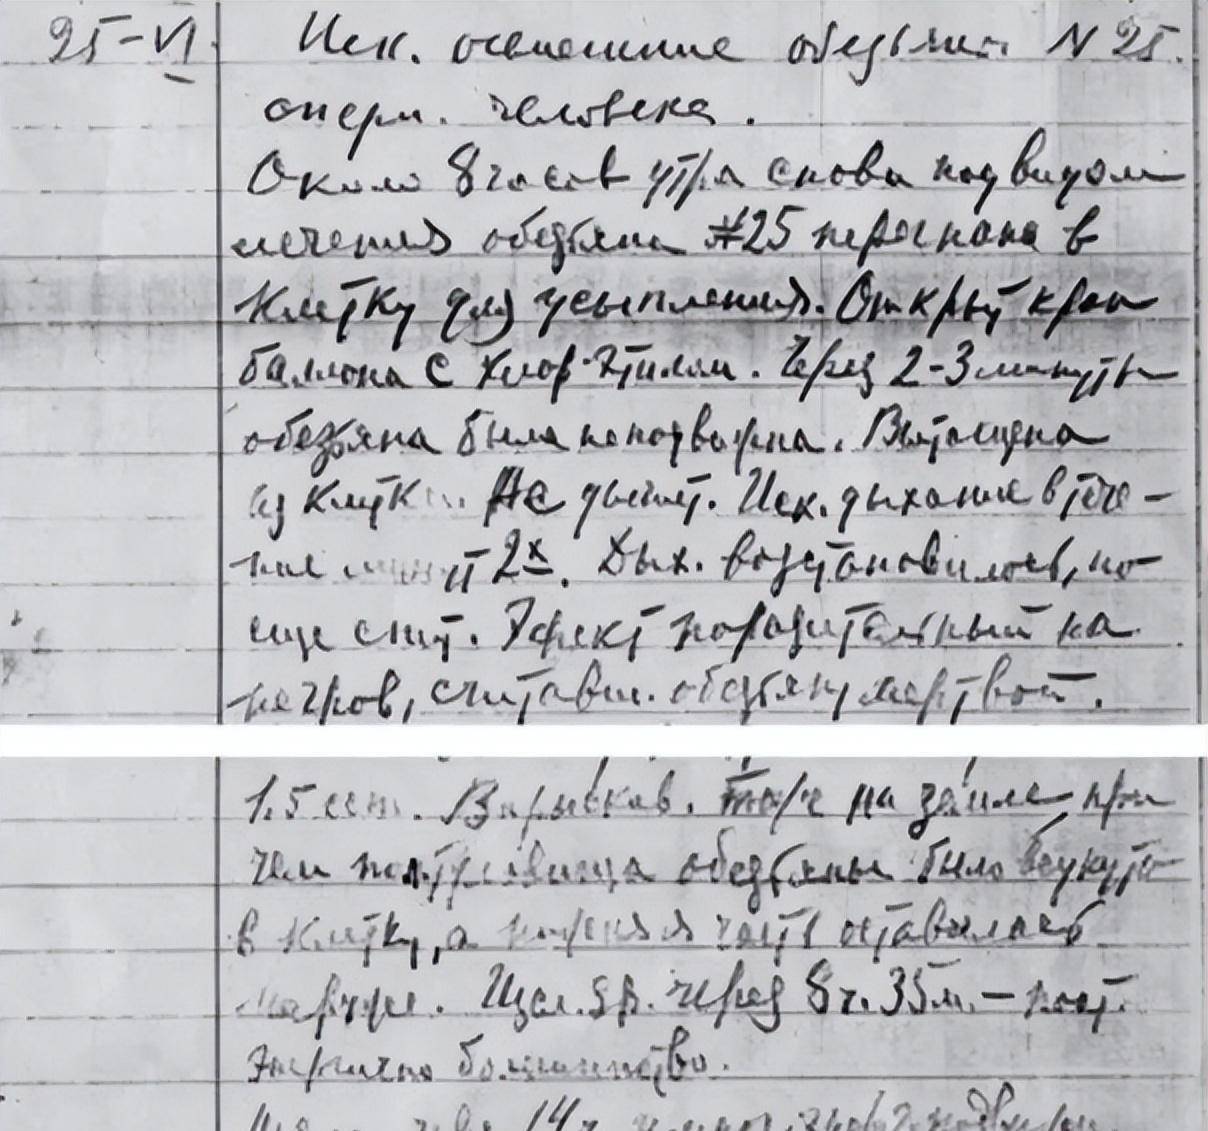 25-VI. Иск. осеменение обезьяны N 25.
сперм. человека.
Около 8 часов утра снова под видом
лечения обезьяна #25 перегнана в
клетку для усыпления. Открыт кран
баллона с хлор-этилом. Через 2-3 минуты
обезьяна была неподвижна. Вытащена
из клетки. Не дышит. Иск. дыхание в тече-
ние минут 2х. Дых. возстановилось, но
еще спит. Эфект поразительный на
негров, считавш. обезьяну мертвой.
1.5 сст. Впрыскив. на земле при
чем обезьяны было
в клетку, а часть оставалась
через 8 ч. 35 м. –
Энергично большинство.
14